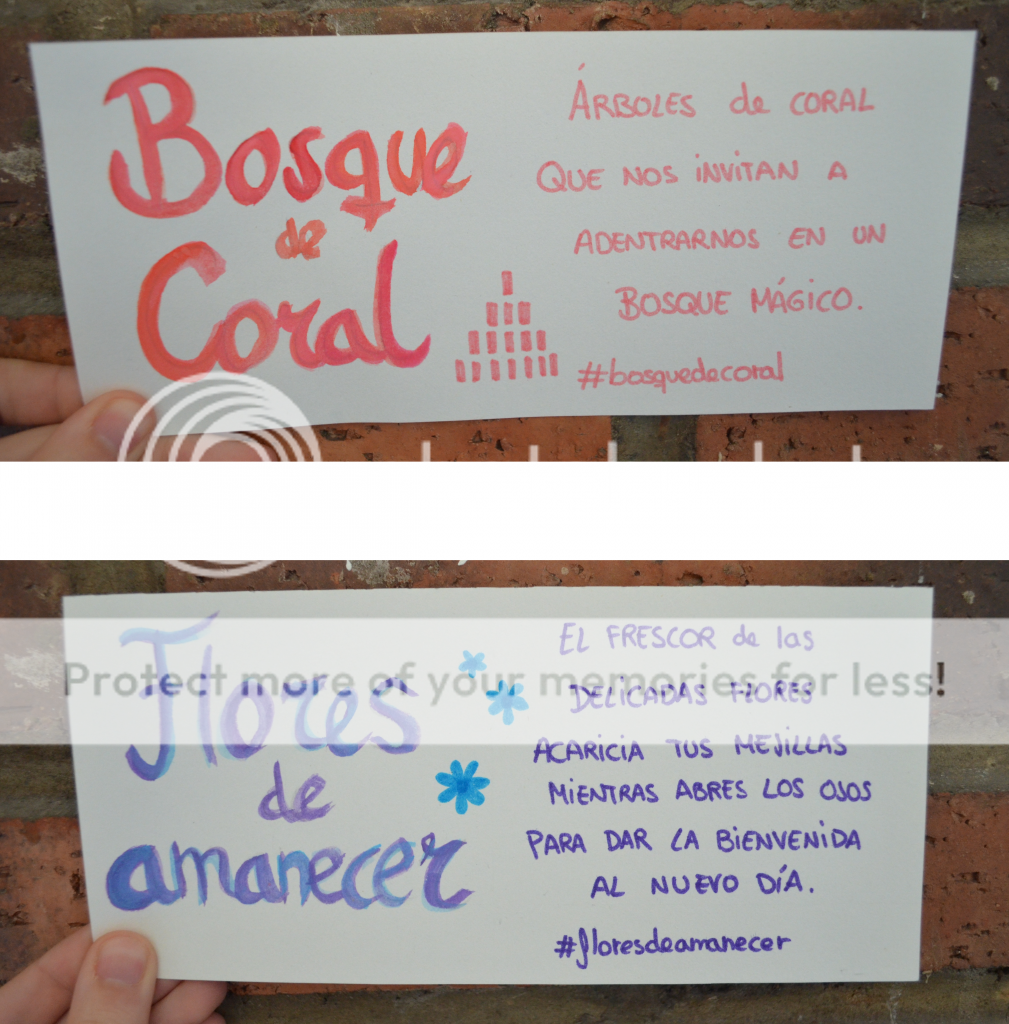 Bosque
de
Coral
ÁRBOLES de CORAL
QUE NOS iNViTAN A
ADENTRARNOS EN UN
BOSQUE MÁGICO.
#bosquedecoral
Protect more of your memories for less!
Flores
de
amanecer
EL FRESCOR de las
DELiCADAS FLORES
ACARiCiA TUS MEJiLLAS
MiENTRAS ABRES LOS OJOS
PARA DAR LA BiENVENiDA
AL NUEVO DÍA.
#floresdeamanecer